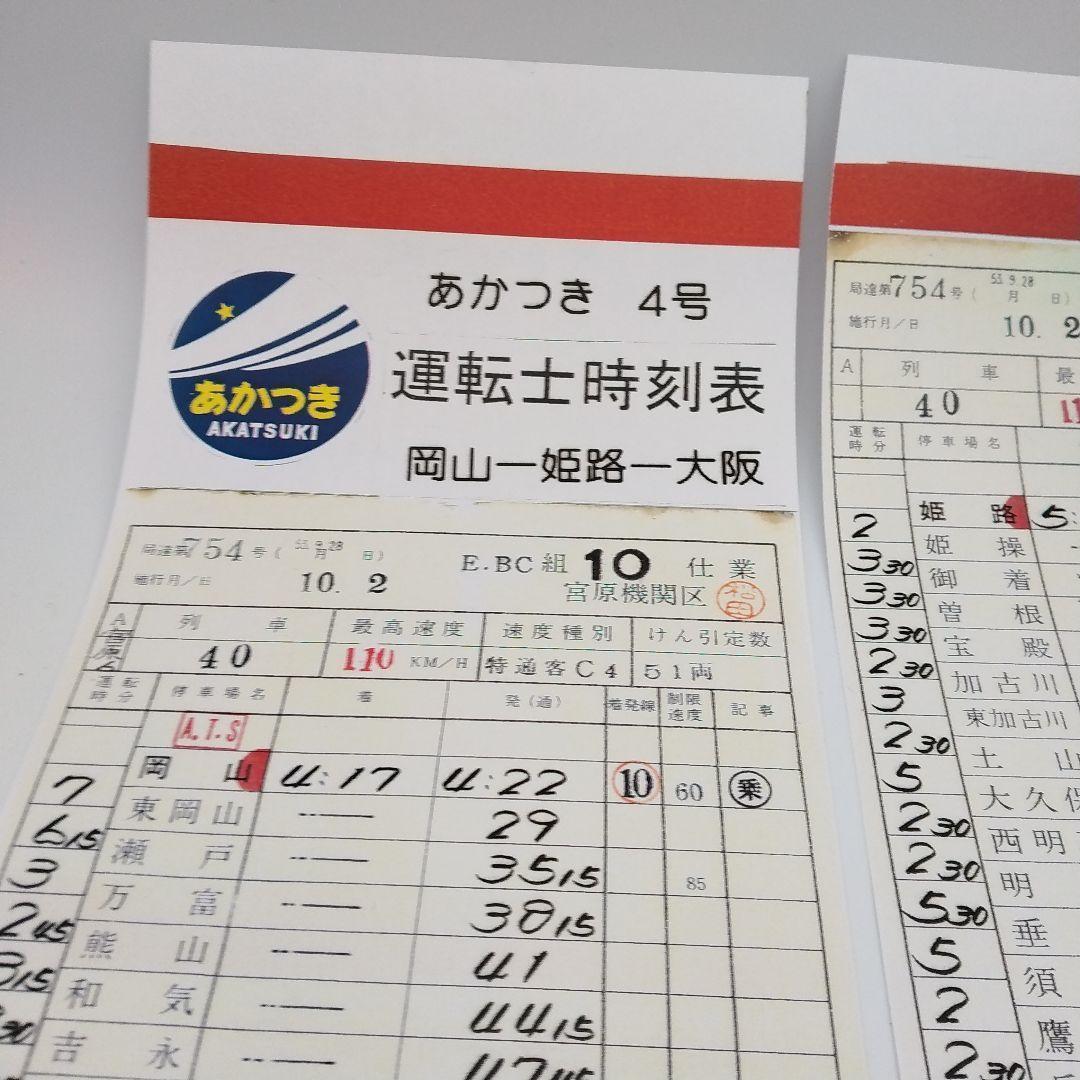 あかつき 4号
あかつき
AKATSUKI
運転士時刻表
岡山ー姫路ー大阪
局達第754号( 53.9.28 月 日)
施行月/日 10. 2
E.BC組 10 仕業
宮原機関区 松田
A 列車 最高速度 速度種別 けん引定数
40 110 KM/H 特通客C4 51両
運転時分 停車場名 着 発(通) 着発線 制限速度 記事
A.T.S
岡山 4:17 4:22 10 60 乗
7
東岡山 29
6 15
瀬戸 35 15 85
3
万富 38 15
2 45
熊山 41
15
和気 44 15
30
吉永 47 45
局達第754号( 53.9.28 月 日)
施行月/日 10. 2
A 列車 最
40 11
運転時分 停車場名
姫路 5:
2
姫操
3 30
御着
3 30
曽根
3 30
宝殿
2 30
加古川
3
東加古川
2 30
土山
5
大久保
2 30
西明
2 30
明
5 30
垂
5
須
2
鷹
2 30